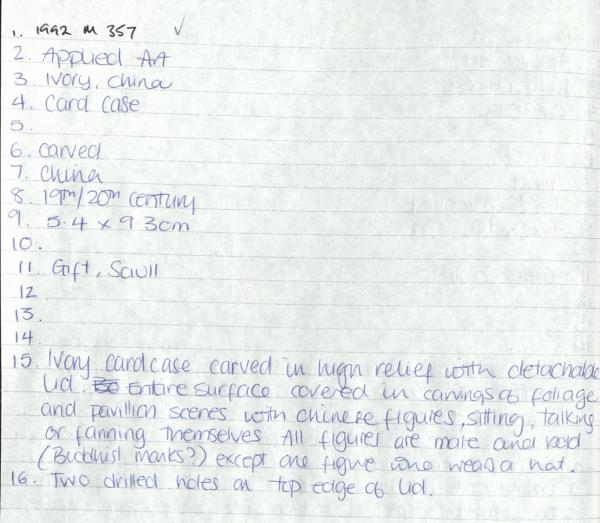 1. 1992 M 357 ✓
2. Applied Art
3 Ivory, China
4. Card Case
5.
6. carved
7. China
8. 19th/20th century
9. 5.4 x 9 3cm
10.
11. Gift, Scull
12
13.
14
15. Ivory cardcase carved in high relief with detachable
lid. Entire surface covered in carvings of foliage
and pavillion scenes with chinese figures, sitting, talking
or fanning themselves All figures are male and bald
(Buddhist monks?) except one figure who wears a hat.
16. Two drilled holes on top edge of lid.